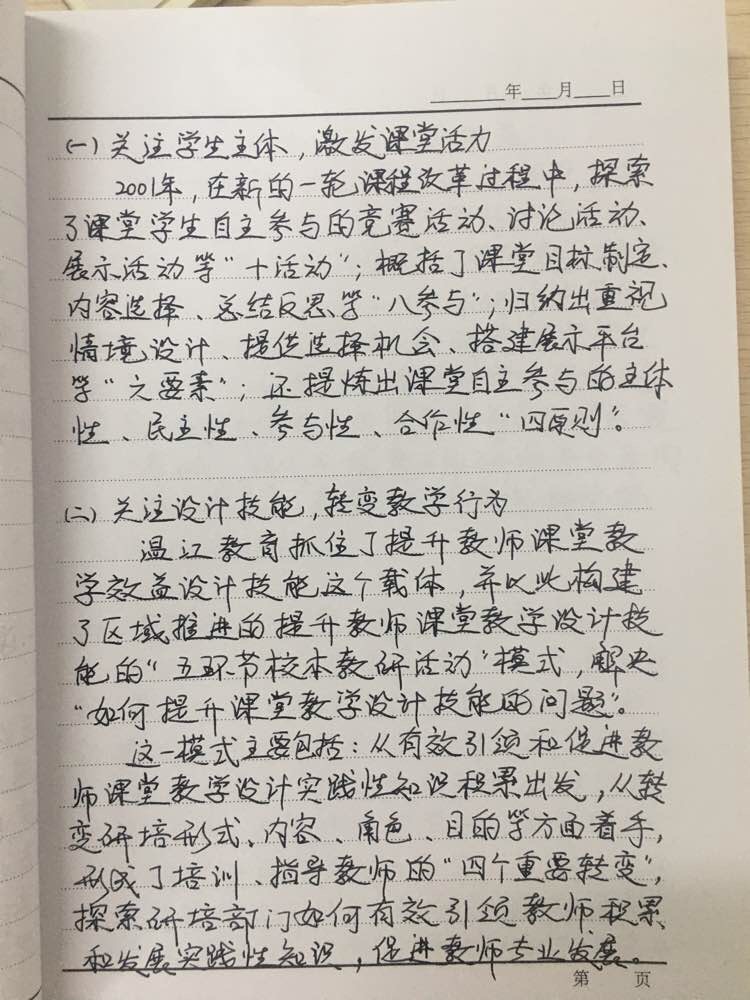 年 月 日
(一)关注学生主体，激发课堂活力
2001年，在新的一轮课程改革过程中，探索
了课堂学生自主参与的竞赛活动、讨论活动、
展示活动等“十活动”；概括了课堂目标制定、
内容选择、总结反思等“八参与”；归纳出重视
情境设计、提供选择机会、搭建展示平台
等“六要素”；还提炼出课堂自主参与的主体
性、民主性、参与性、合作性“四原则”。
(二)关注设计技能，转变教学行为
温江教育抓住了提升教师课堂教
学效益设计技能这个载体，并以此构建
了区域推进的提升教师课堂教学设计技
能的“五环节校本教研活动”模式，解决
“如何提升课堂教学设计技能的问题”。
这一模式主要包括：从有效引领和促进教
师课堂教学设计实践性知识积累出发，从转
变研培形式、内容、角色、目的等方面着手，
形成了培训、指导教师的“四个重要转变”，
探索研培部门如何有效引领教师积累
和发展实践性知识，促进教师专业发展。
第 页